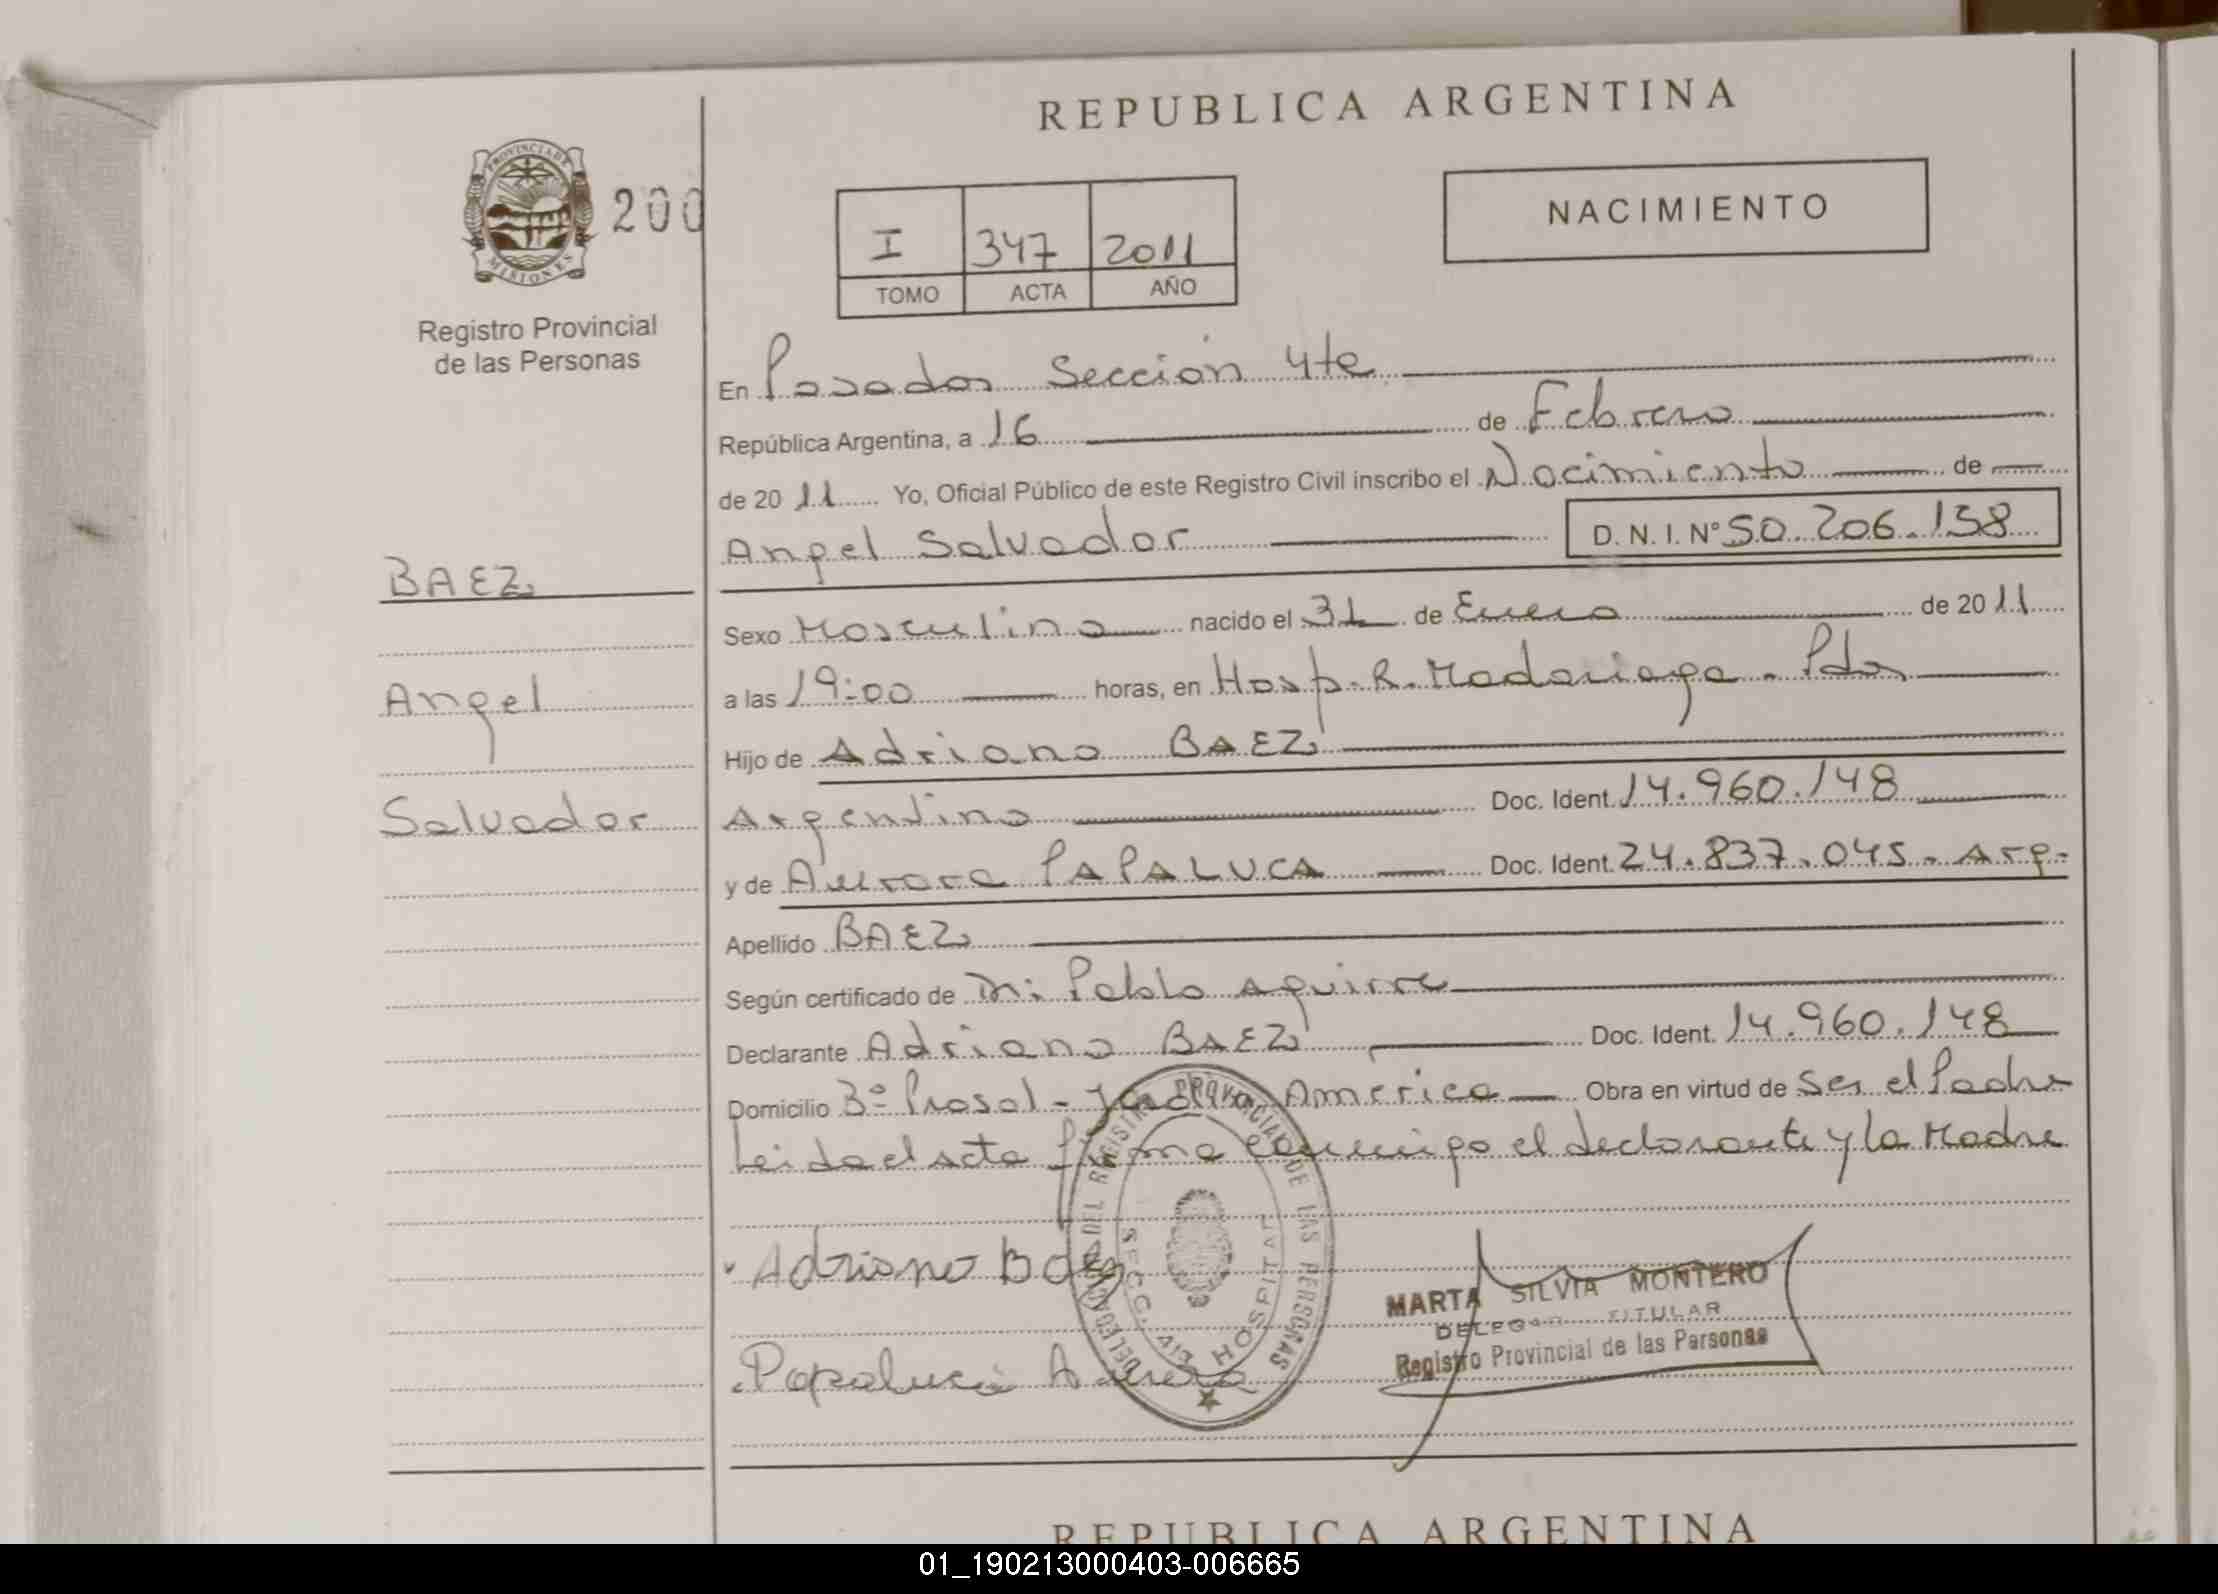 REPUBLICA ARGENTINA
PROVINCIA DE
MISIONES
200
Registro Provincial
de las Personas
NACIMIENTO
I 347 2011
TOMO ACTA AÑO
En Posadas Sección 4ta
República Argentina, a 16 de Febrero
de 20 11 Yo, Oficial Público de este Registro Civil inscribo el Nacimiento de
Angel Salvador D. N. I. Nº 50.206.158
BAEZ
Angel
Salvador
Sexo Masculino nacido el 31 de Enero de 20 11
a las 19:00 horas, en Hosp. R. Madariaga - Pdas
Hijo de Adriano BAEZ
Argentino Doc. Ident. 14.960.148
y de Aurora PAPALUCA Doc. Ident. 24.837.045 - Arg.
Apellido BAEZ
Según certificado de Pablo Aguirre
Declarante Adriano BAEZ Doc. Ident. 14.960.148
Domicilio 3º Prosol - Jardín America Obra en virtud de Ser el Padre
Leida el acta firma conmigo el declarante y la Madre
DELEGACION DEL REGISTRO PROVINCIAL DE LAS PERSONAS
SECC. 4ta HOSPITAL
Adriano Baez
Papaluca Aurora
MARTA SILVIA MONTERO
DELEGADA TITULAR
Registro Provincial de las Personas
REPUBLICA ARGENTINA
01_190213000403-006665